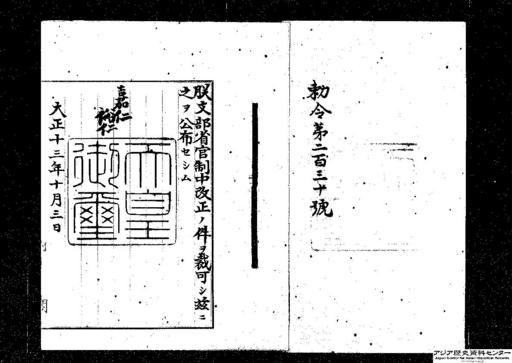 勅令第二百三十號
朕文部省官制中改正ノ件ヲ裁可シ玆ニ
之ヲ公布セシム
嘉仁
裕仁
天皇
御璽
大正十三年十月三日
アジア歴史資料センター
Japan Center for Asian Historical Records